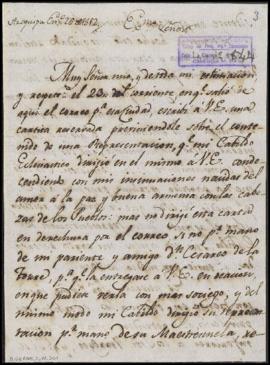 Arequipa En.º 28 de 1812
Ex.ma
Señora
3
Muy Señora mia, y de toda mi estimacion,
y respeto: el 20 del corriente en q.e salió de
aqui el correo p.a esa Ciudad, escribí á V.E. una
cartica reservada previniendole sobre el conte-
nido de una Representacion, q.e mi Cabildo
Eclesiastico dirigió en el mismo á V.E. conde-
cendiendo con mis insinuaciones nacidas del
amor á la paz y buena armonia con las Cabe-
zas de los Pueblos: mas no dirigi esta carta en
derechura por el correo, si no p.r mano
de mi pariente y amigo d.n Cesareo de la
Torre, p.a q.e la entregase á V.E. en ocasion,
en que pudiera verla con mas sociego, y del
mismo modo mi Cabildo dirigió su represen-
tacion p.r mano de su Maestrescuela